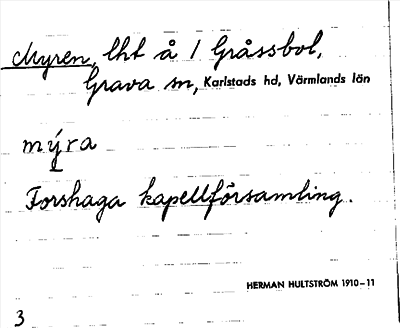 Myren, lht å 1 Gråssbol,
Grava sn, Karlstads hd, Värmlands län
mýra
Forshaga kapellförsamling.
HERMAN HULTSTRÖM 1910–11
3